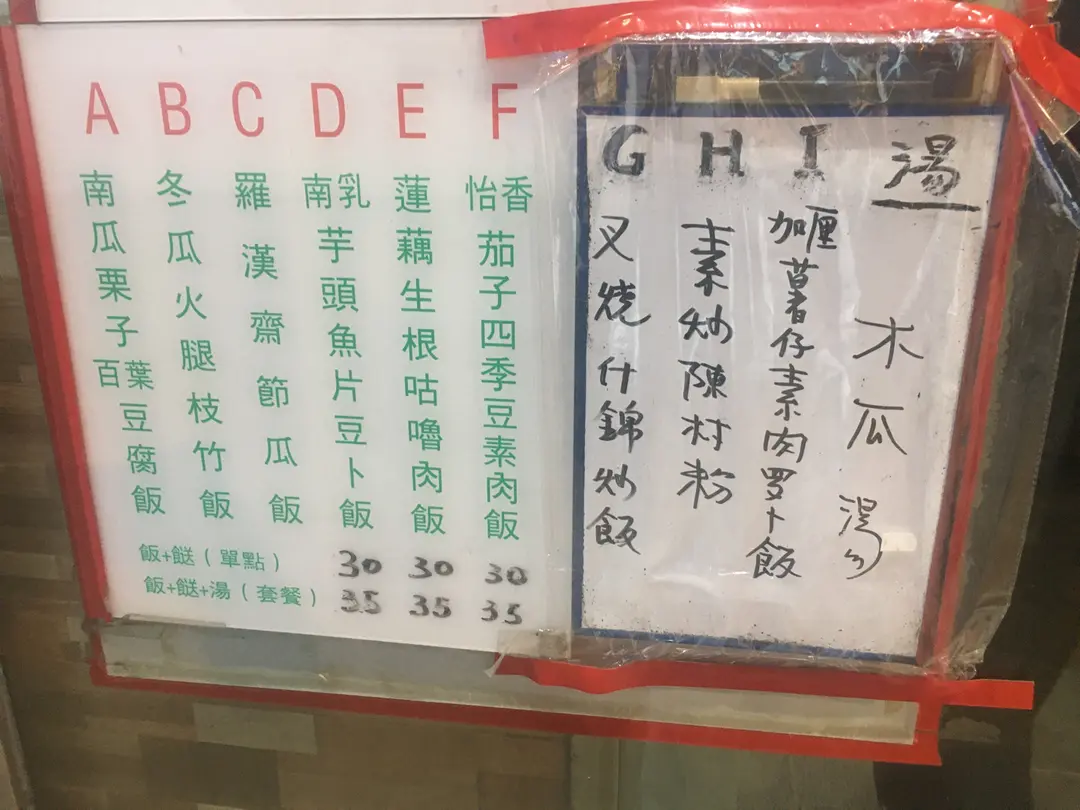 A B C D E F
南瓜栗子百葉豆腐飯
冬瓜火腿枝竹飯
羅漢齋節瓜飯
南乳芋頭魚片豆卜飯
蓮藕生根咕嚕肉飯
怡香茄子四季豆素肉飯
飯+餸（單點） 30 30 30
飯+餸+湯（套餐） 35 35 35
G H I
叉燒什錦炒飯
素炒陳村粉
加厘薯仔素肉罗卜飯
湯
木瓜湯